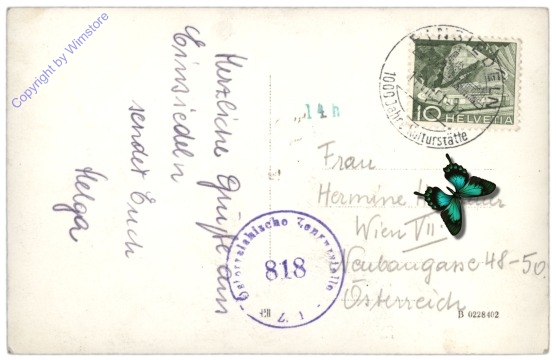 Copyright by Wimstore
Herzliche Grüße aus
Einsiedeln
sendet Euch
Helga
14h
1000 Jahre Kulturstätte
10 HELVETIA
Frau
Hermine
Wien VII
Neubaugasse 48-50
Österreich
Österreichische Zensurstelle
818
B 0228402